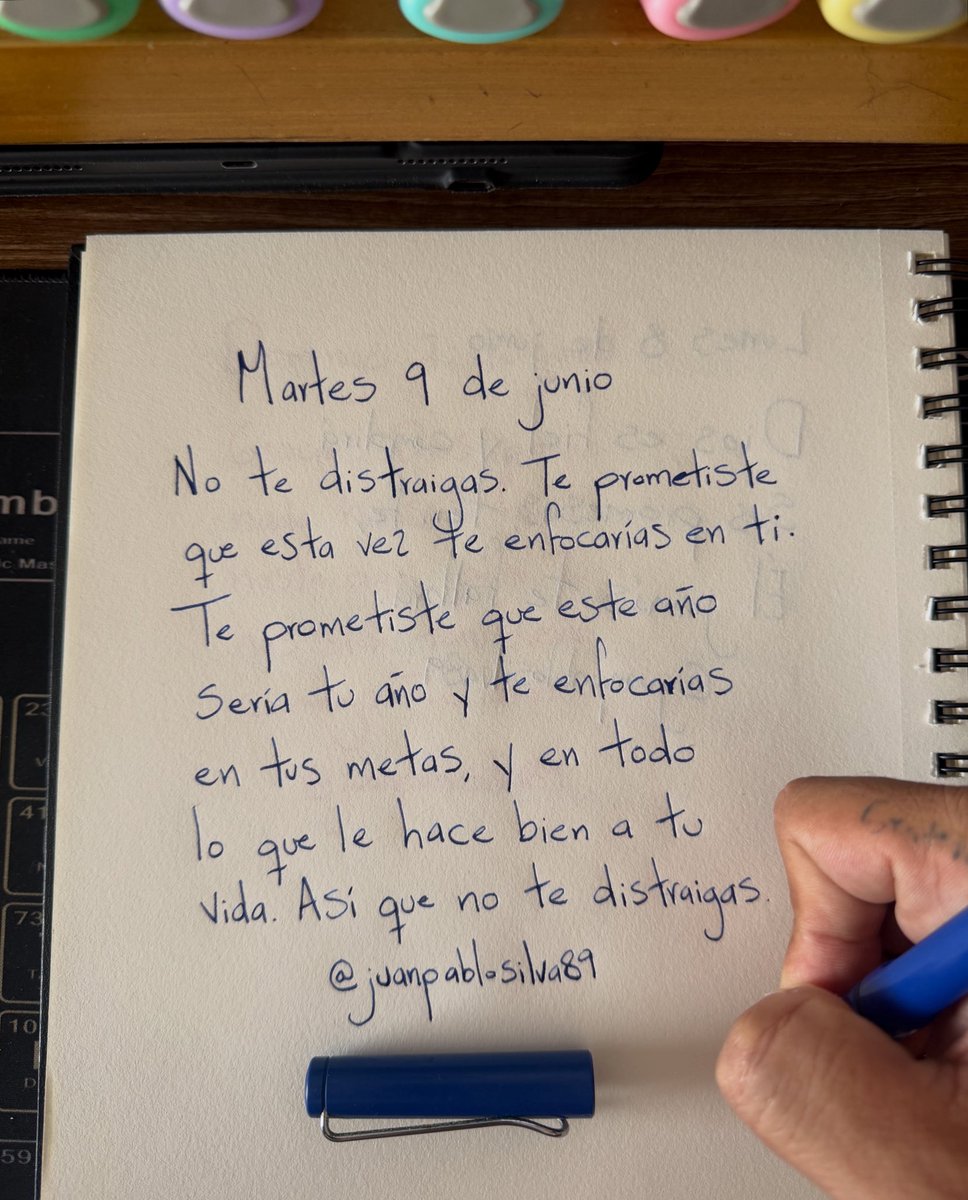 Martes 9 de junio
No te distraigas. Te prometiste
que esta vez te enfocarías en ti.
Te prometiste que este año
sería tu año y te enfocarías
en tus metas, y en todo
lo que le hace bien a tu
vida. Así que no te distraigas.
@juanpablosilva89
mb
23
41
73
10
59